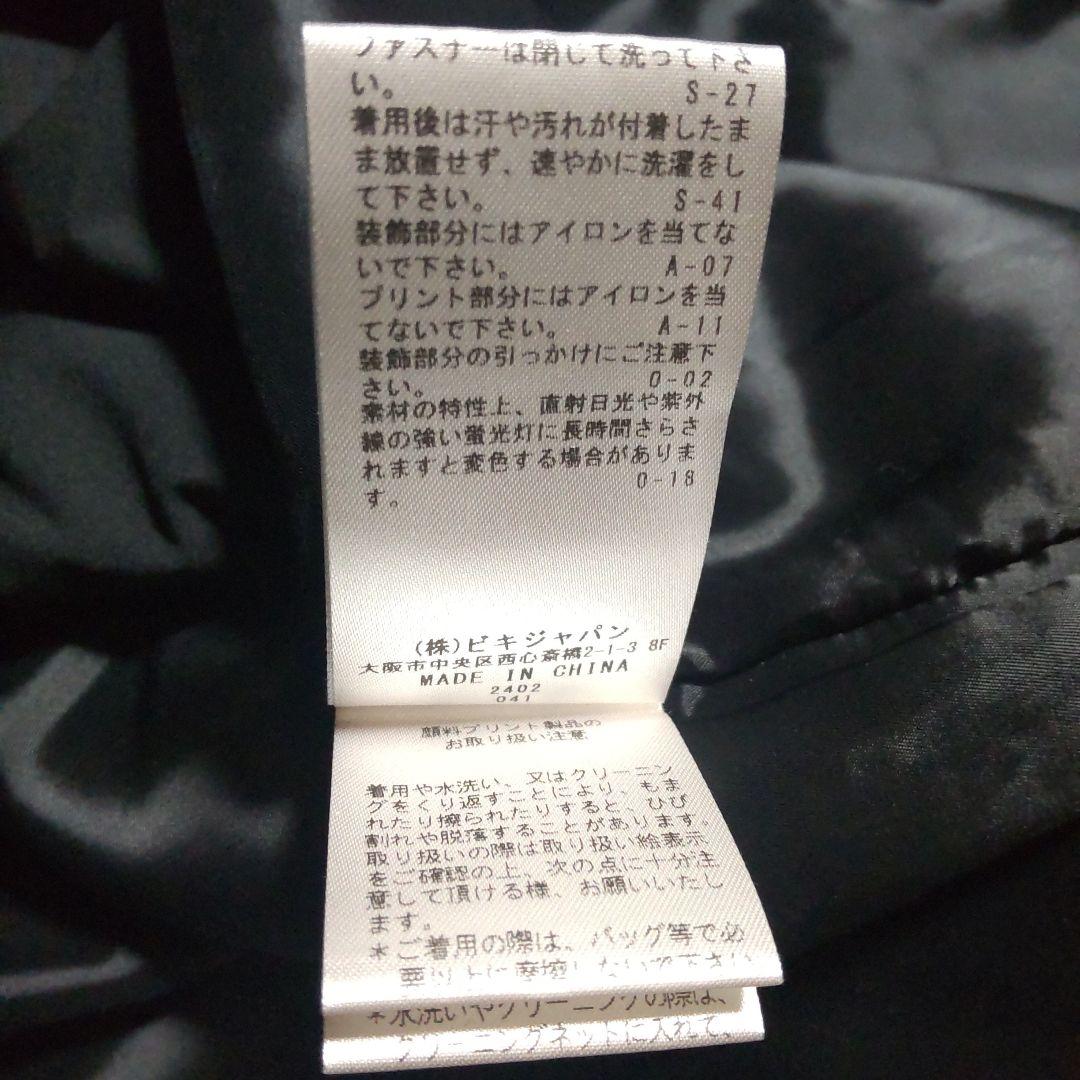 ファスナーは閉じて洗って下さ
い。 S-27
着用後は汗や汚れが付着したま
ま放置せず、速やかに洗濯をし
て下さい。 S-41
装飾部分にはアイロンを当てな
いで下さい。 A-07
プリント部分にはアイロンを当
てないで下さい。 A-11
装飾部分の引っかけにご注意下
さい。 O-02
素材の特性上、直射日光や紫外
線の強い蛍光灯に長時間さらさ
れますと変色する場合がありま
す。 O-18
(株)ビキジャパン
大阪市中央区西心斎橋2-1-3 8F
MADE IN CHINA
2402
041
顔料プリント製品の
お取り扱い注意
着用や水洗い、又はクリーニン
グをくり返すことにより、もま
れたり擦られたりすると、ひび
割れや脱落することがあります。
取り扱いの際は取り扱い絵表示
をご確認の上、次の点に十分注
意して頂ける様、お願いいたし
ます。
*ご着用の際は、バッグ等で必
要以上に摩擦しないで下さい
*水洗いやクリーニングの際は、
クリーニングネットに入れて、